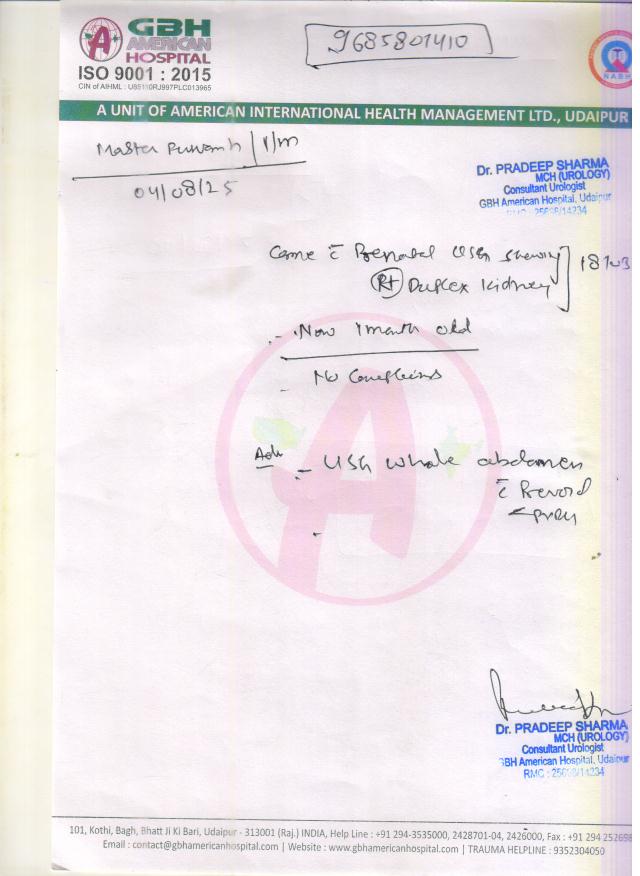 9685801410
GBH
AMERICAN
HOSPITAL
ISO 9001 : 2015
CIN of AIHML : U85110RJ997PLC013965
NABH
A UNIT OF AMERICAN INTERNATIONAL HEALTH MANAGEMENT LTD., UDAIPUR
Master
04/08/25
Dr. PRADEEP SHARMA
MCH (UROLOGY)
Consultant Urologist
GBH American Hospital, Udaipur
Came c̄ Prenatal USG showing
Rt Duplex kidney
- Now 1 month old
- No Complains
Adv - USG whole abdomen
c̄
Dr. PRADEEP SHARMA
MCH (UROLOGY)
Consultant Urologist
GBH American Hospital, Udaipur
101, Kothi, Bagh, Bhatt Ji Ki Bari, Udaipur - 313001 (Raj.) INDIA, Help Line : +91 294-3535000, 2428701-04, 2426000, Fax : +91 294 252698
Email : contact@gbhamericanhospital.com | Website : www.gbhamericanhospital.com | TRAUMA HELPLINE : 9352304050